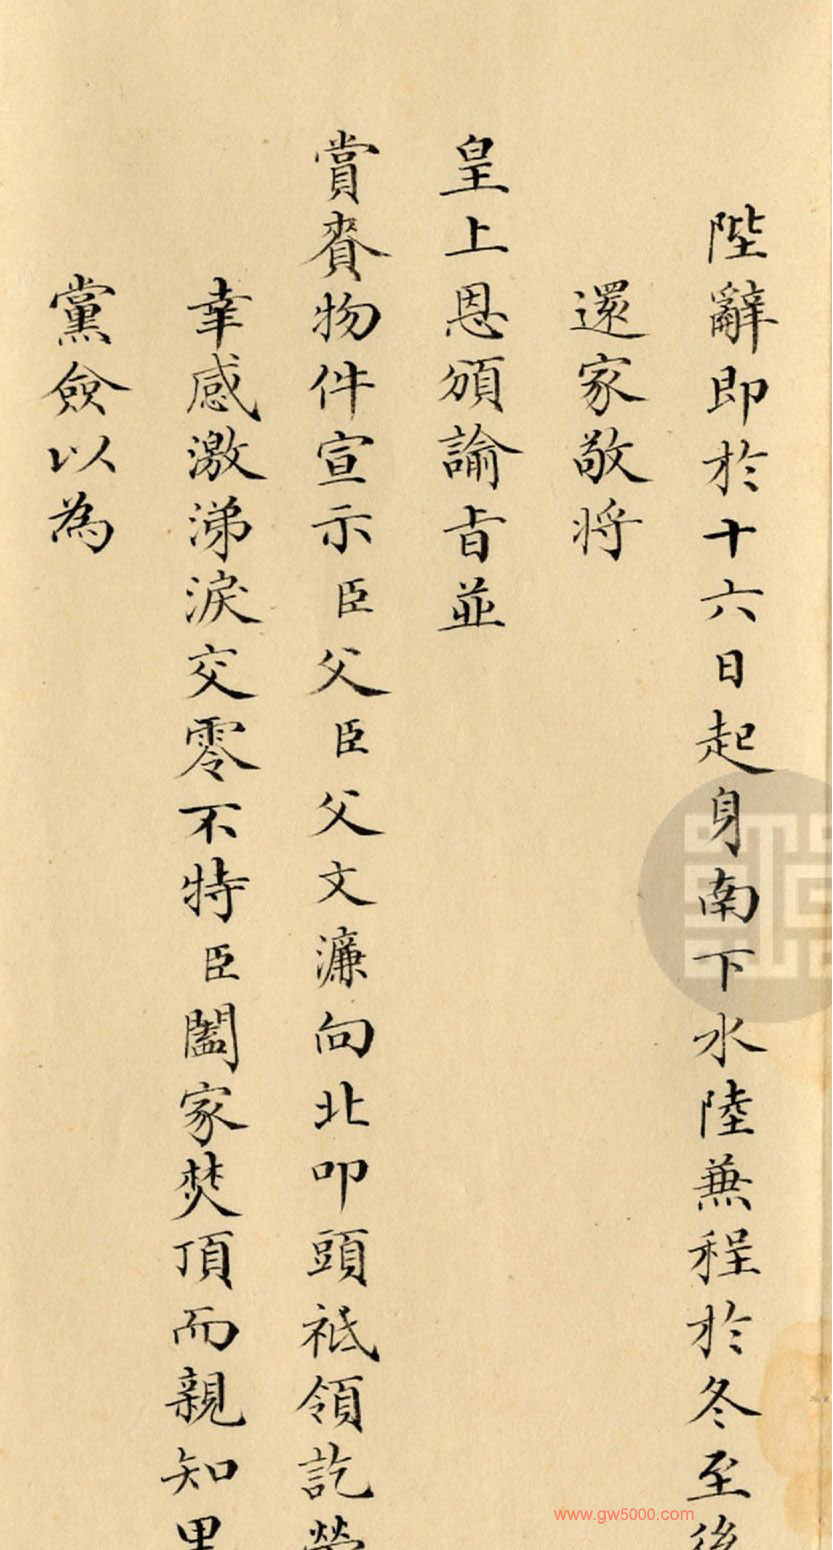 陛辭即於十六日起身南下水陸兼程於冬至後
還家敬將
皇上恩頒諭旨並
賞賚物件宣示臣父臣父文濂向北叩頭祗領訖榮
幸感激涕淚交零不特臣闔家焚頂而親知里
黨僉以為
www.gw5000.com